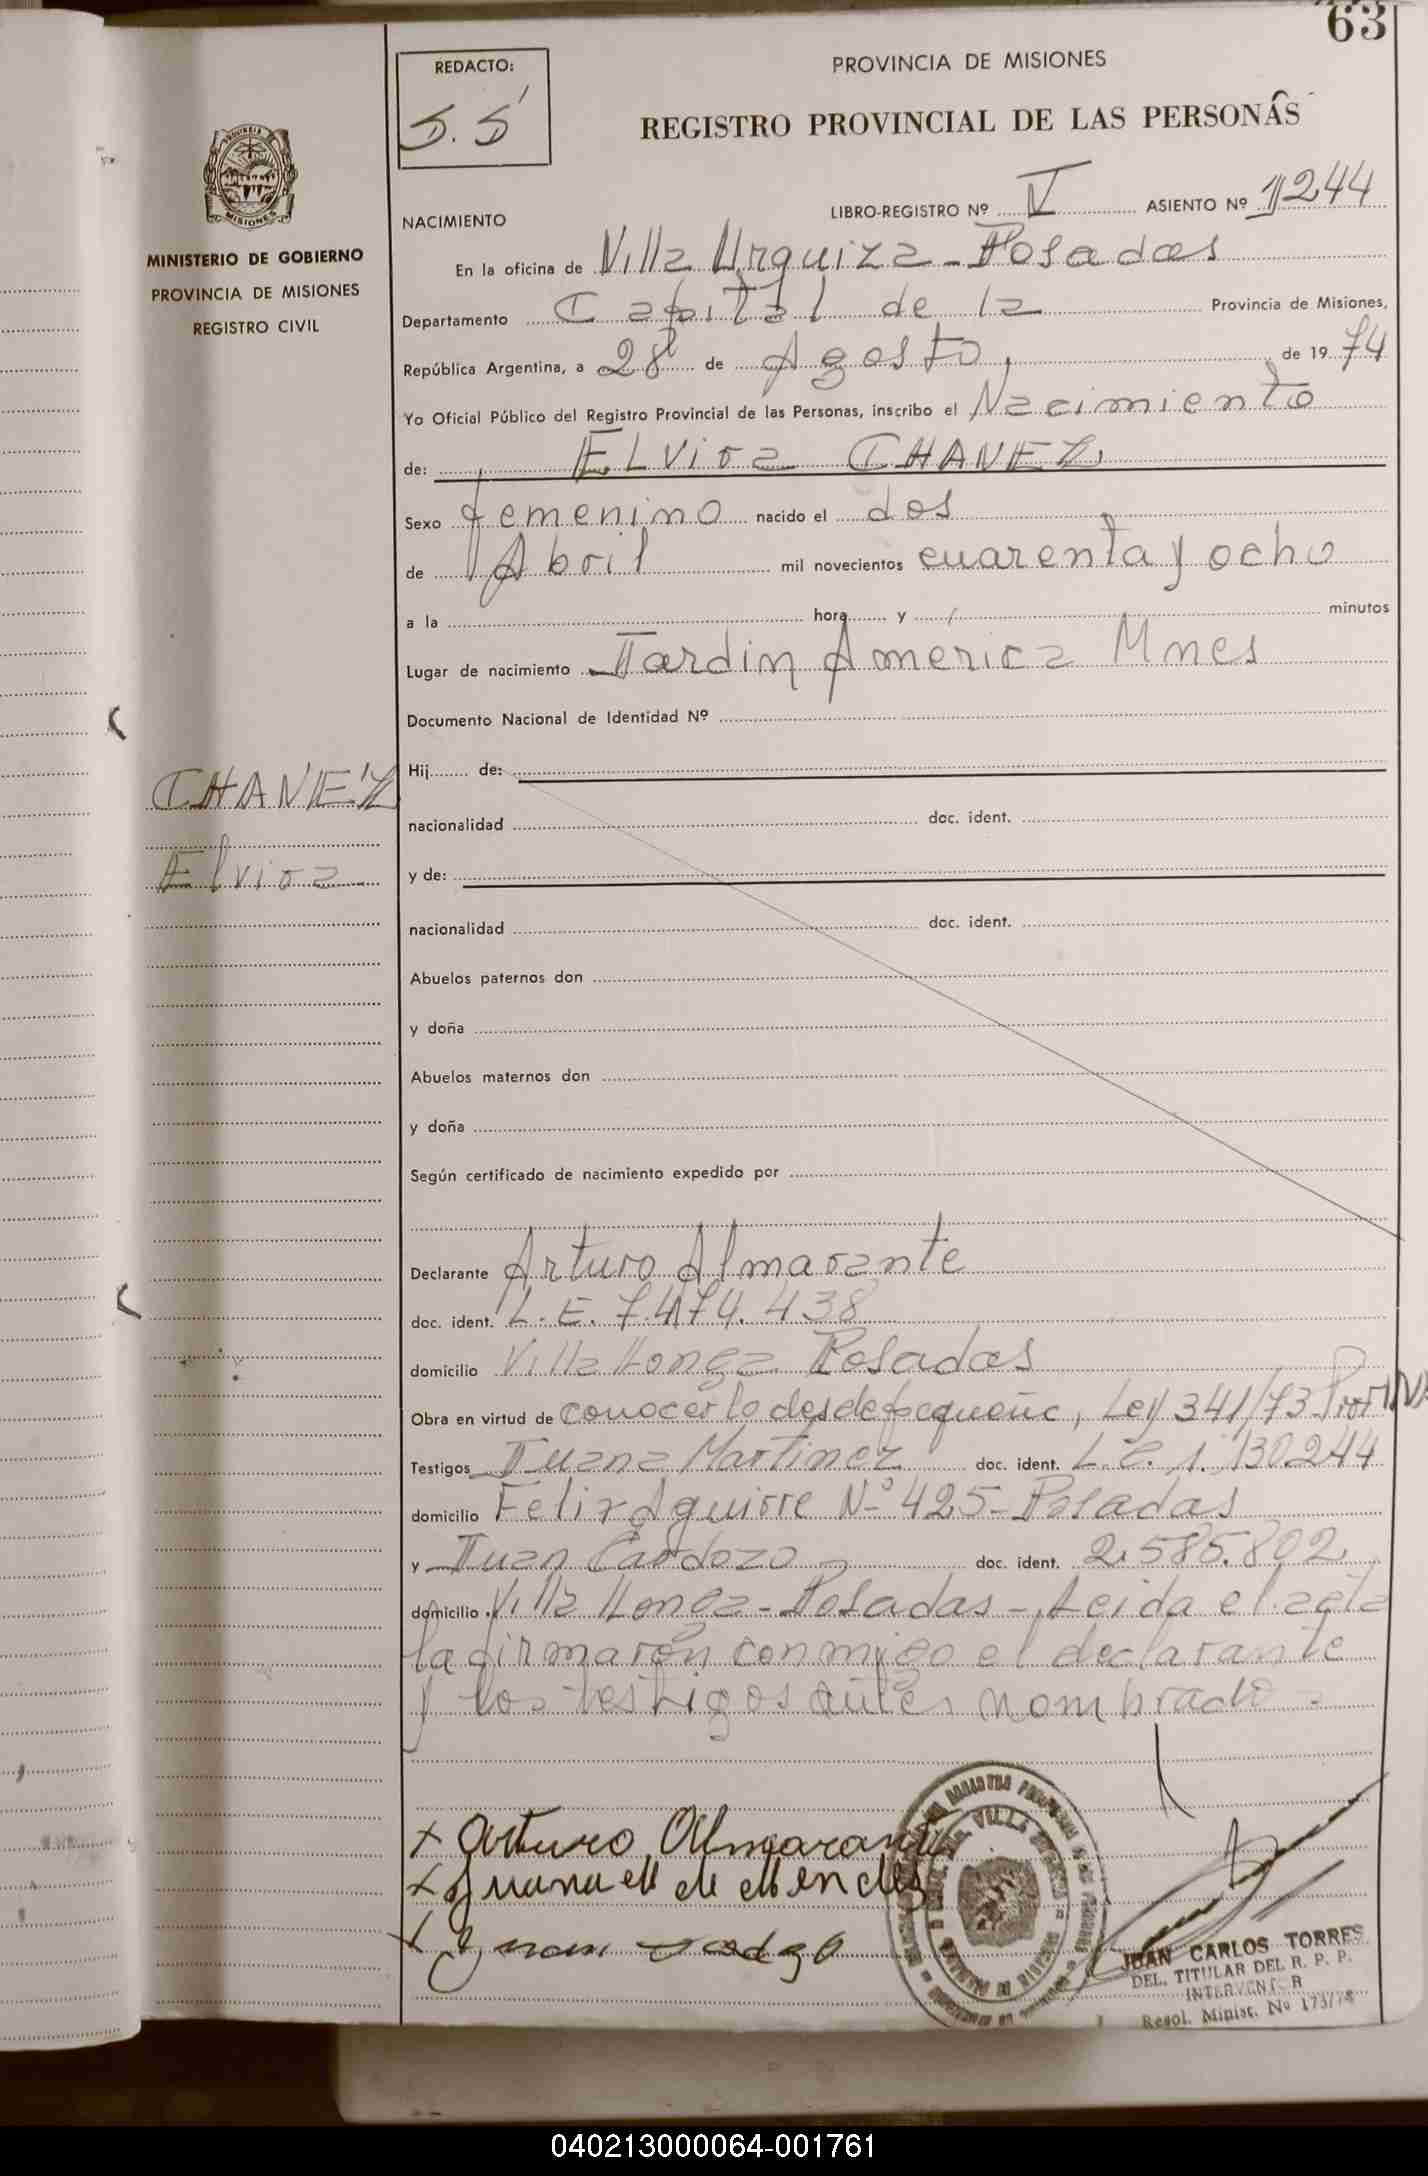 63
REDACTO:
S.S
PROVINCIA DE MISIONES
REGISTRO PROVINCIAL DE LAS PERSONAS
MISIONES
MINISTERIO DE GOBIERNO
PROVINCIA DE MISIONES
REGISTRO CIVIL
NACIMIENTO
LIBRO-REGISTRO Nº V ASIENTO Nº 1244
En la oficina de Villa Urquiza - Posadas
Departamento Capital de la Provincia de Misiones,
República Argentina, a 28 de Agosto, de 1974
Yo Oficial Público del Registro Provincial de las Personas, inscribo el Nacimiento
de: ELVira CHANEZ,
Sexo femenino nacido el dos
de Abril mil novecientos cuarenta y ocho
a la hora y minutos
Lugar de nacimiento Jardin America Mnes
Documento Nacional de Identidad Nº
Hij de:
CHANEZ
nacionalidad doc. ident.
Elvira
y de:
nacionalidad doc. ident.
Abuelos paternos don
y doña
Abuelos maternos don
y doña
Según certificado de nacimiento expedido por
Declarante Arturo Almarante
doc. ident. L.E. 7.474.438
domicilio Villa Longa Posadas
Obra en virtud de conocerlo desde pequeña, Ley 341/73
Testigos Juana Martinez doc. ident. L.C. 1.130244
domicilio Felix Aguirre Nº 425 - Posadas
y Juan Cardozo - doc. ident. 2.585.802
domicilio Villa Longa - Posadas - Leida el acta
la firmaron conmigo el declarante
y los testigos antes nombrado -
x Arturo Almarante
x Juana M de
x Juan
JUAN CARLOS TORRES
DEL. TITULAR DEL R. P. P.
INTERVENTOR
Resol. Minist. Nº 173/74
040213000064-001761